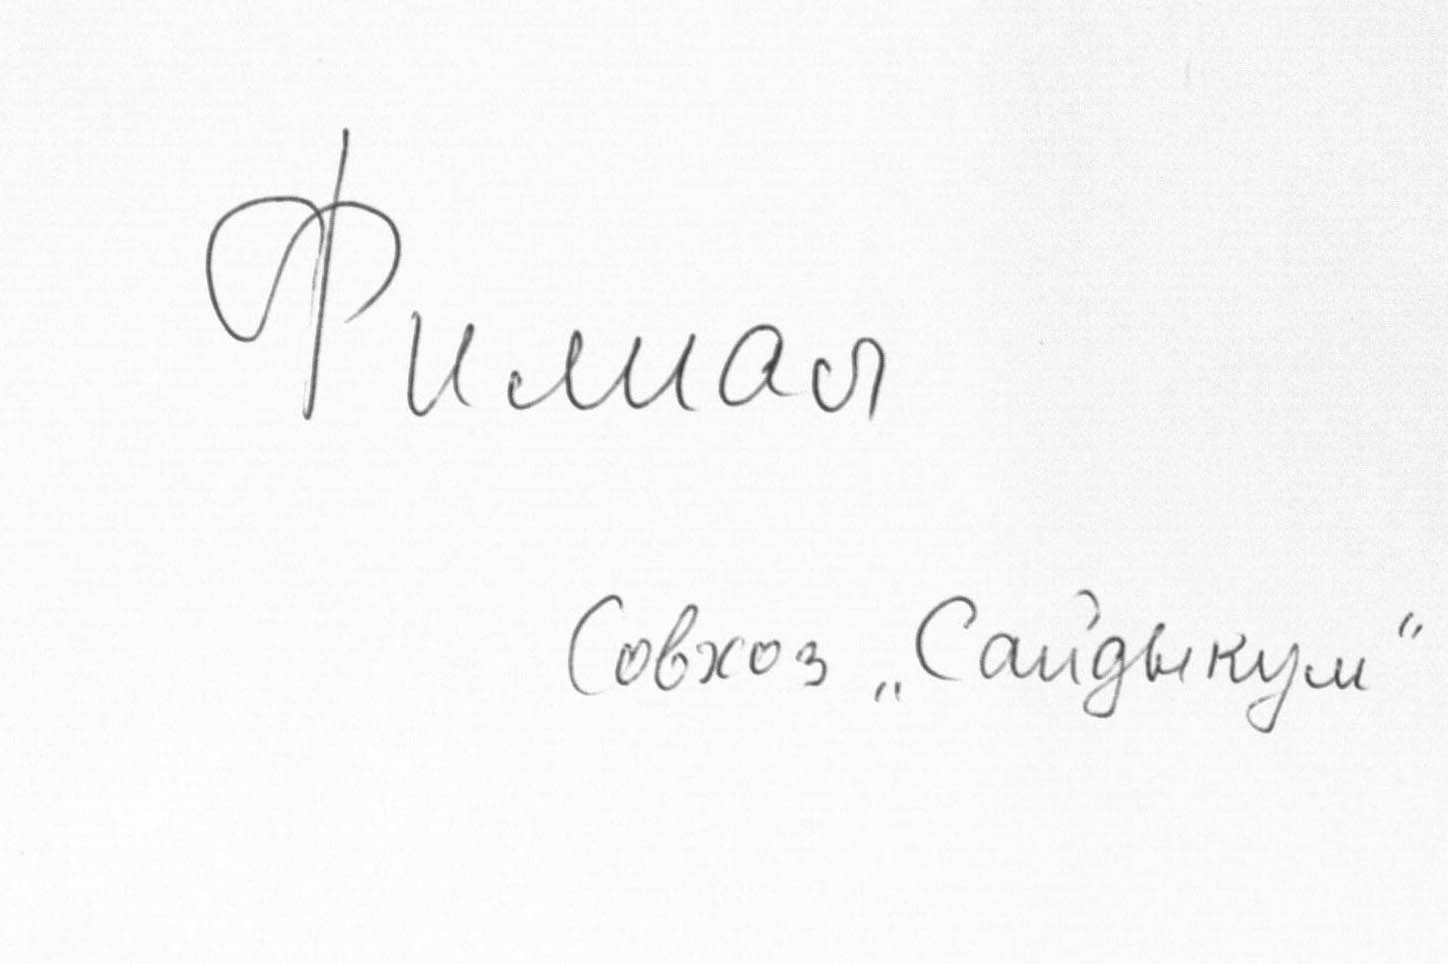 Филиал
Совхоз „Сайдыкум“